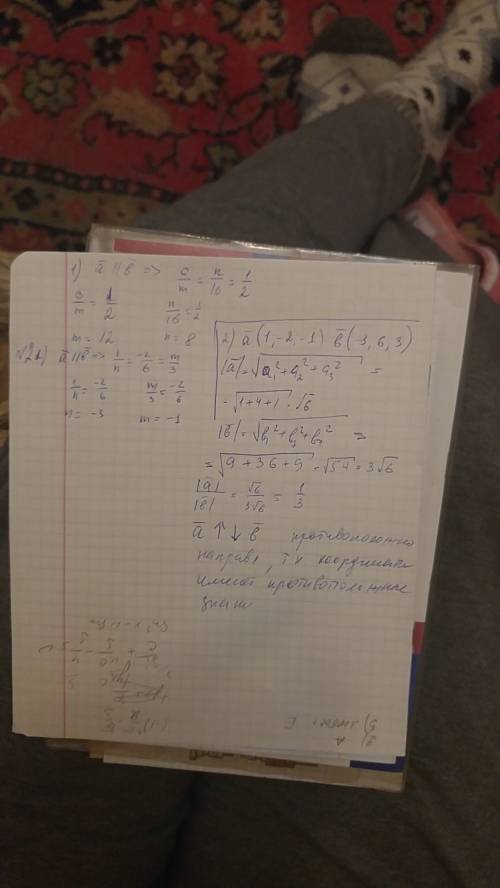 1) a̅ || b̅ => 6/m = n/16 = 1/2
6/m = 1/2   n/16 = 1/2
m = 12   n = 8
a̅ || b̅ => 1/n = -2/6 = m/3
1/n = -2/6   m/3 = -2/6
n = -3   m = -1
2) a̅ (1, -2, -1) b̅ (-3, 6, 3)
|a̅| = √(a₁² + a₂² + a₃²) =
= √(1+4+1) = √6
|b̅| = √(b₁² + b₂² + b₃²) =
= √(9 + 36 + 9) = √54 = 3√6
|a̅|/|b̅| = √6/3√6 = 1/3
a̅ ↑ ↓ b̅ противоположно
направл, тк координаты
имеют противоположные
знаки